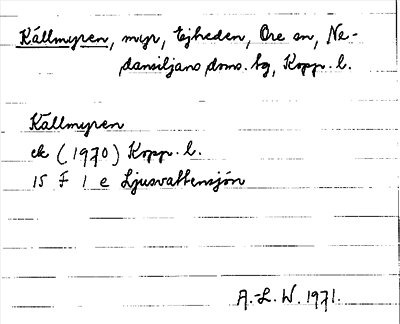 Källmyren, myr, Ejheden, Ore sn, Ne-
dansiljans doms. hg, Kopp. l.
Källmyren
ek (1970) Kopp. l.
15 F 1 e Ljusvattensjön
A.-L. W. 1971.